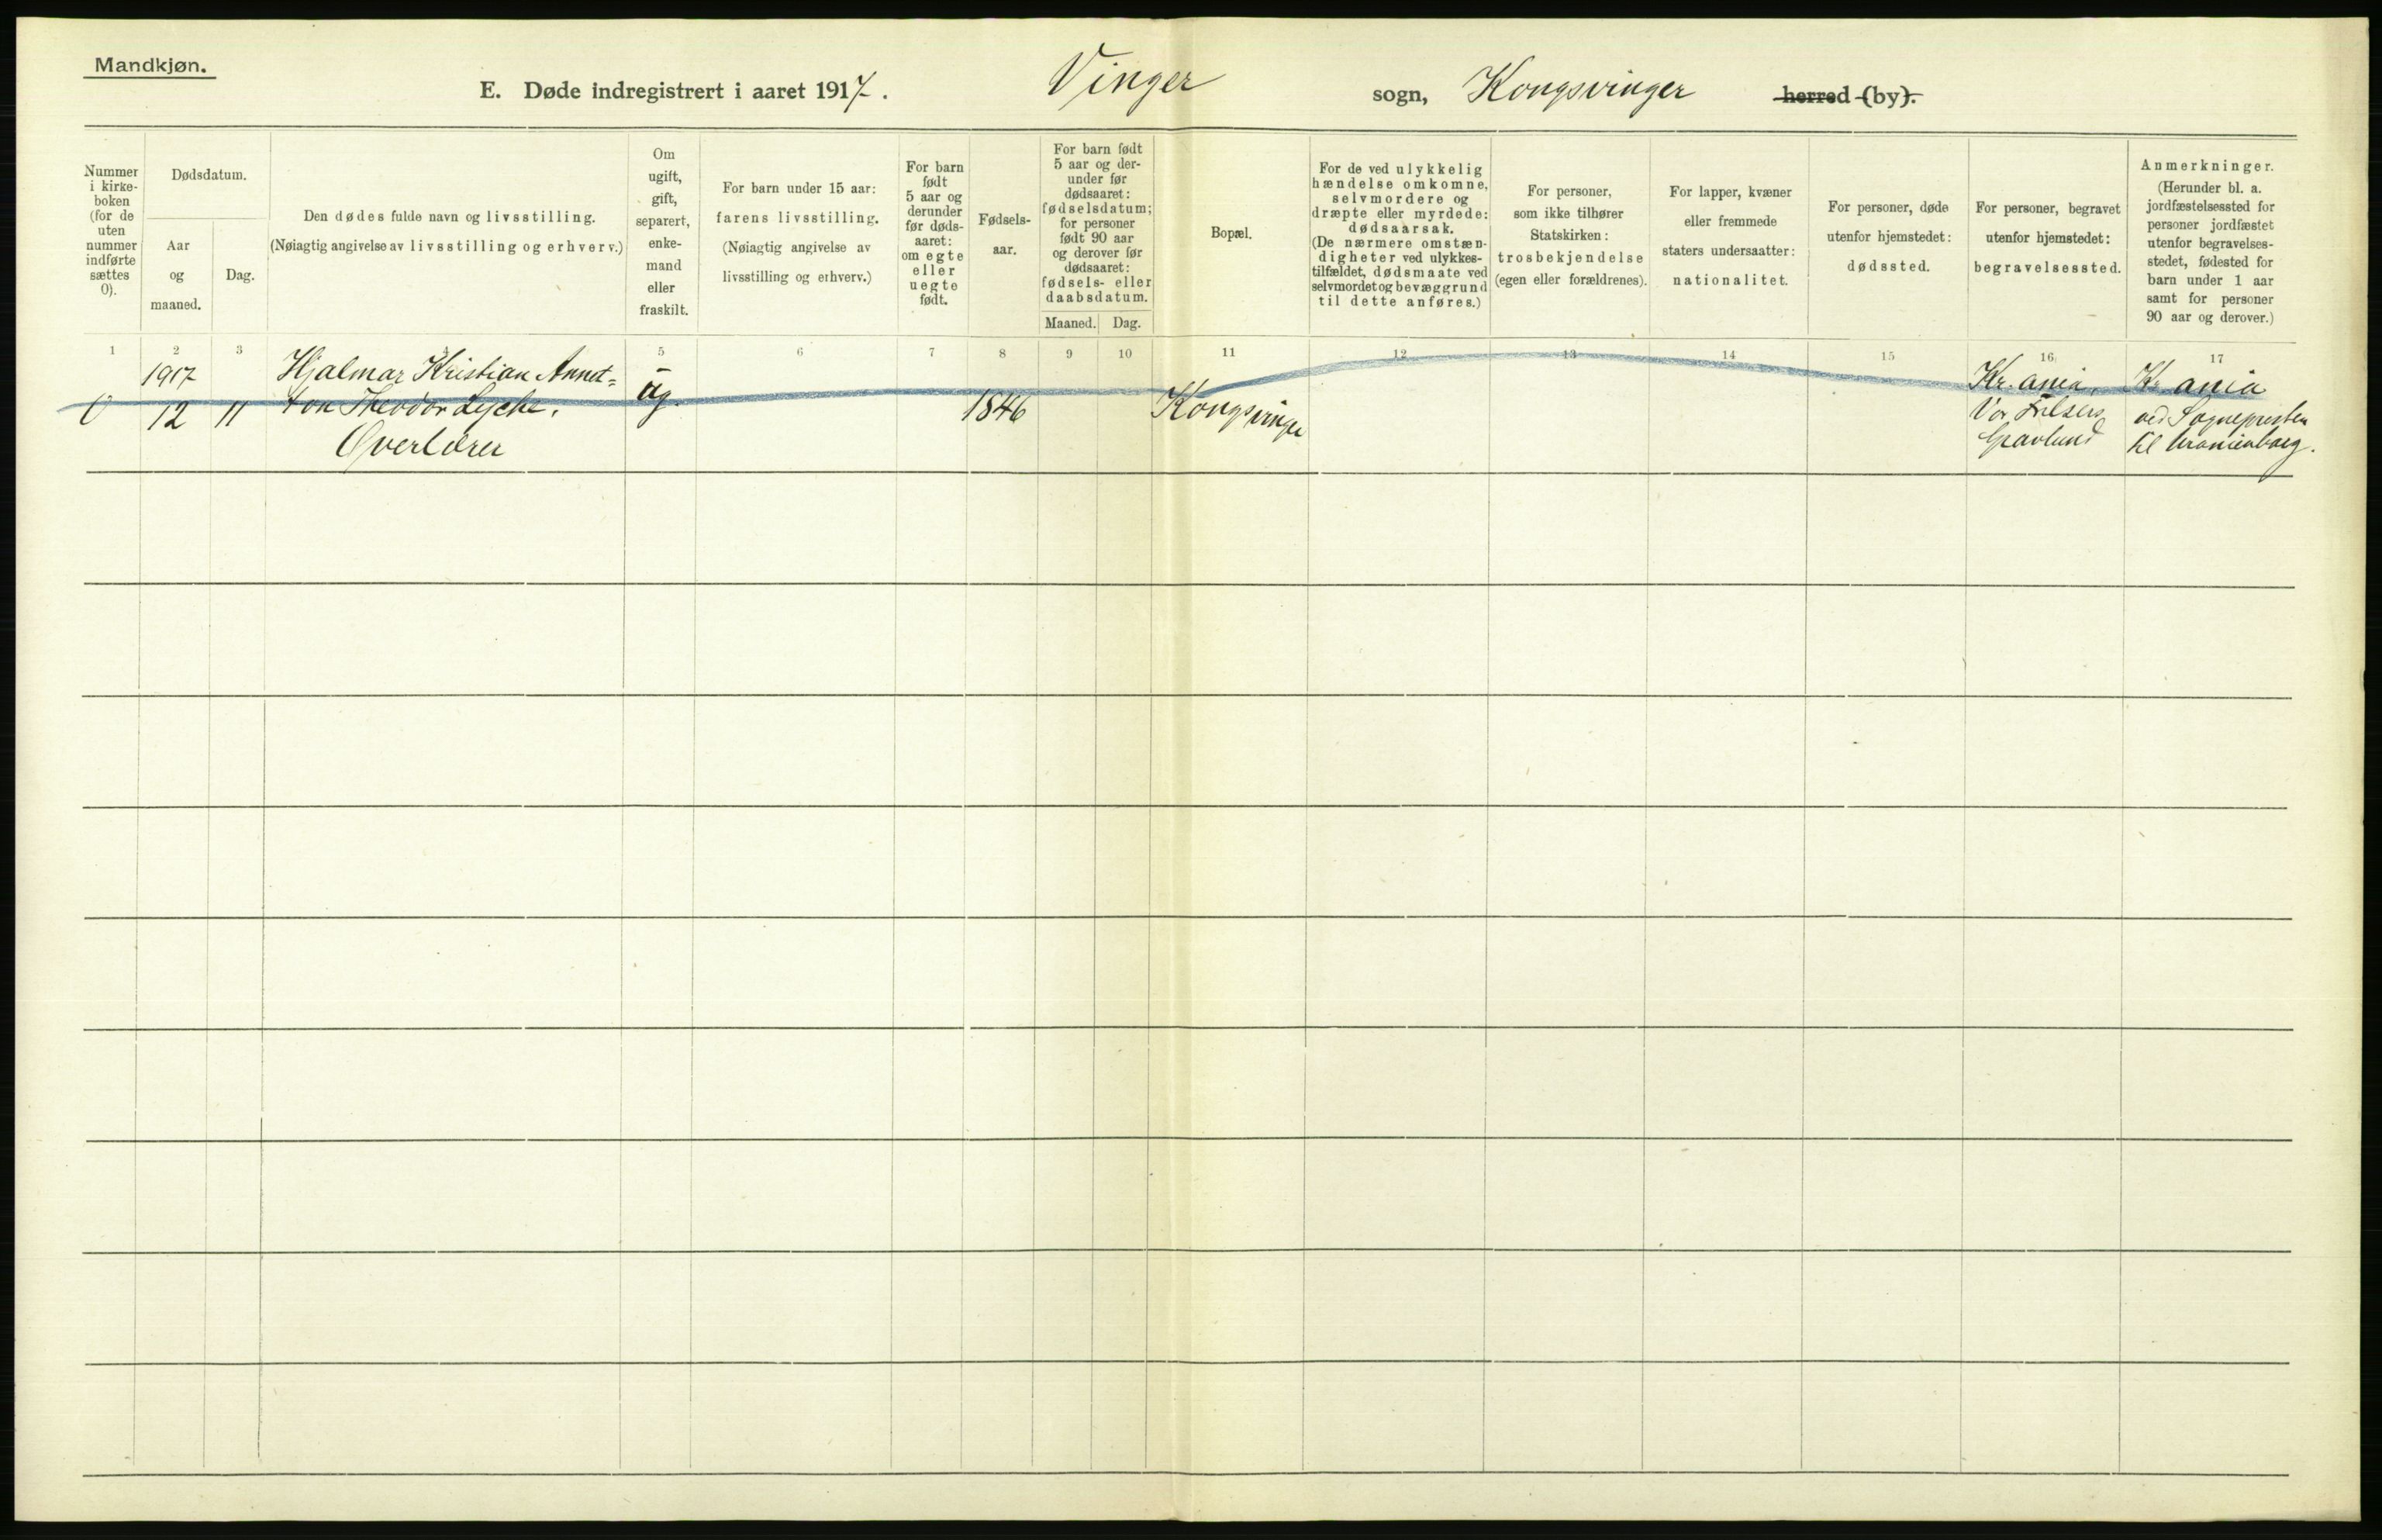 Mandkjøn.
E. Døde indregistrert i aaret 1917. Vinger sogn, Kongsvinger herred (by).
Nummer
i kirke-
boken
(for de
uten
nummer
indførte
sættes
0).
Dødsdatum.
Aar
og
maaned.
Dag.
Den dødes fulde navn og livsstilling.
(Nøiagtig angivelse av livsstilling og erhverv.)
Om
ugift,
gift,
separert,
enke-
mand
eller
fraskilt.
For barn under 15 aar:
farens livsstilling.
(Nøiagtig angivelse av
livsstilling og erhverv.)
For barn
født
5 aar og
derunder
før døds-
aaret:
om egte
eller
uegte
født.
Fødsels-
aar.
For barn født
5 aar og der-
under før
dødsaaret:
fødselsdatum;
for personer
født 90 aar
og derover før
dødsaaret:
fødsels- eller
daabsdatum.
Maaned. Dag.
Bopæl.
For de ved ulykkelig
hændelse omkomne,
selvmordere og
dræpte eller myrdede:
dødsaarsak.
(De nærmere omstæn-
digheter ved ulykkes-
tilfældet, dødsmaate ved
selvmordet og bevæggrund
til dette anføres.)
For personer,
som ikke tilhører
Statskirken:
trosbekjendelse
(egen eller forældrenes).
For lapper, kvæner
eller fremmede
staters undersaatter:
nationalitet.
For personer, døde
utenfor hjemstedet:
dødssted.
For personer, begravet
utenfor hjemstedet:
begravelsessted.
Anmerkninger.
(Herunder bl. a.
jordfæstelsessted for
personer jordfæstet
utenfor begravelses-
stedet, fødested for
barn under 1 aar
samt for personer
90 aar og derover.)
1 2 3 4 5 6 7 8 9 10 11 12 13 14 15 16 17
0
1917
12
11
Hjalmar Kristian
Theodor Lyche.
Overlærer
ug.
1846
Kongsvinger
Kr.ania,
Vor Frelsers
Gravlund
Kr.ania
ved Sognepresten
til Uranienborg.